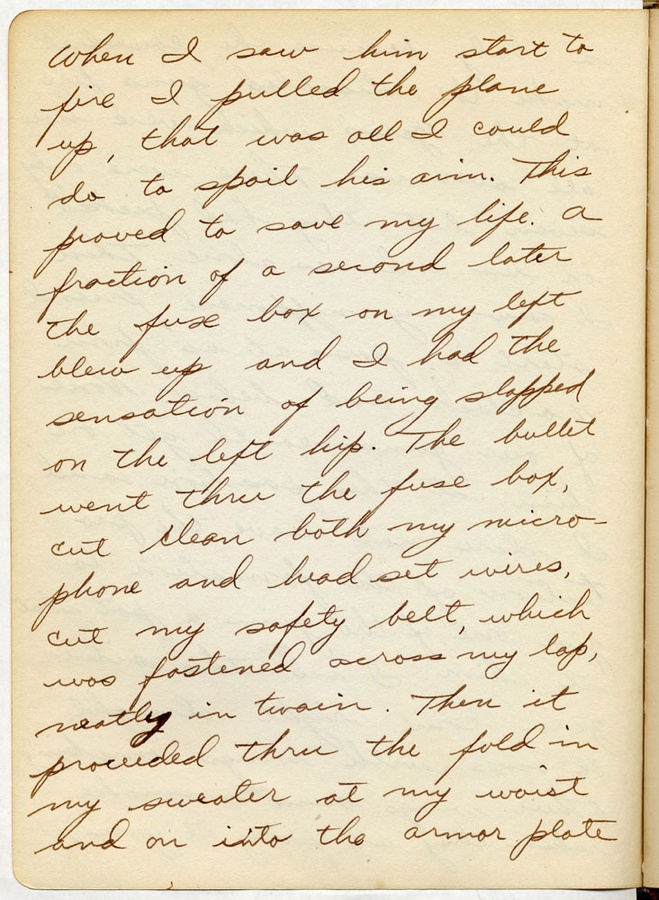 When I saw him start to
fire I pulled the plane
up, that was all I could
do to spoil his aim. This
proved to save my life. A
fraction of a second later
the fuse box on my left
blew up and I had the
sensation of being slapped
on the left hip. The bullet
went thru the fuse box,
cut clean both my micro-
phone and head set wires,
cut my safety belt, which
was fastened across my lap,
neatly in twain. Then it
proceeded thru the fold in
my sweater at my waist
and on into the armor plate